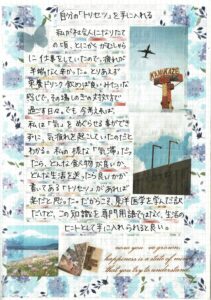 自分の「トリセツ」を手に入れる
私が社会人になりたて
の頃、とにかくがむしゃら
に仕事をしていたので、疲れが
半端なく辛かった。とりあえず
栄養ドリンク飲めば良いみたいな
感じで、その場しのぎの対処で
過ごす日々。でも、今考えれば
私は「気」をめぐらせる事ができ
ずに、気疲れを起こしていたのだと
わかる。私の様な「気滞」だっ
たら、どんな食べ物が良いか、
どんな生活を送ったら良いかが
書いてある「トリセツ」があれば
楽だと思った。だからこそ、東洋医学を学んだ
だけど、この知識を専門用語ではなく、生活の
ヒントとして手に入れられると良い。
KAMIKAZE
once you've grown,
happiness is a state of mind
that you try to understand.